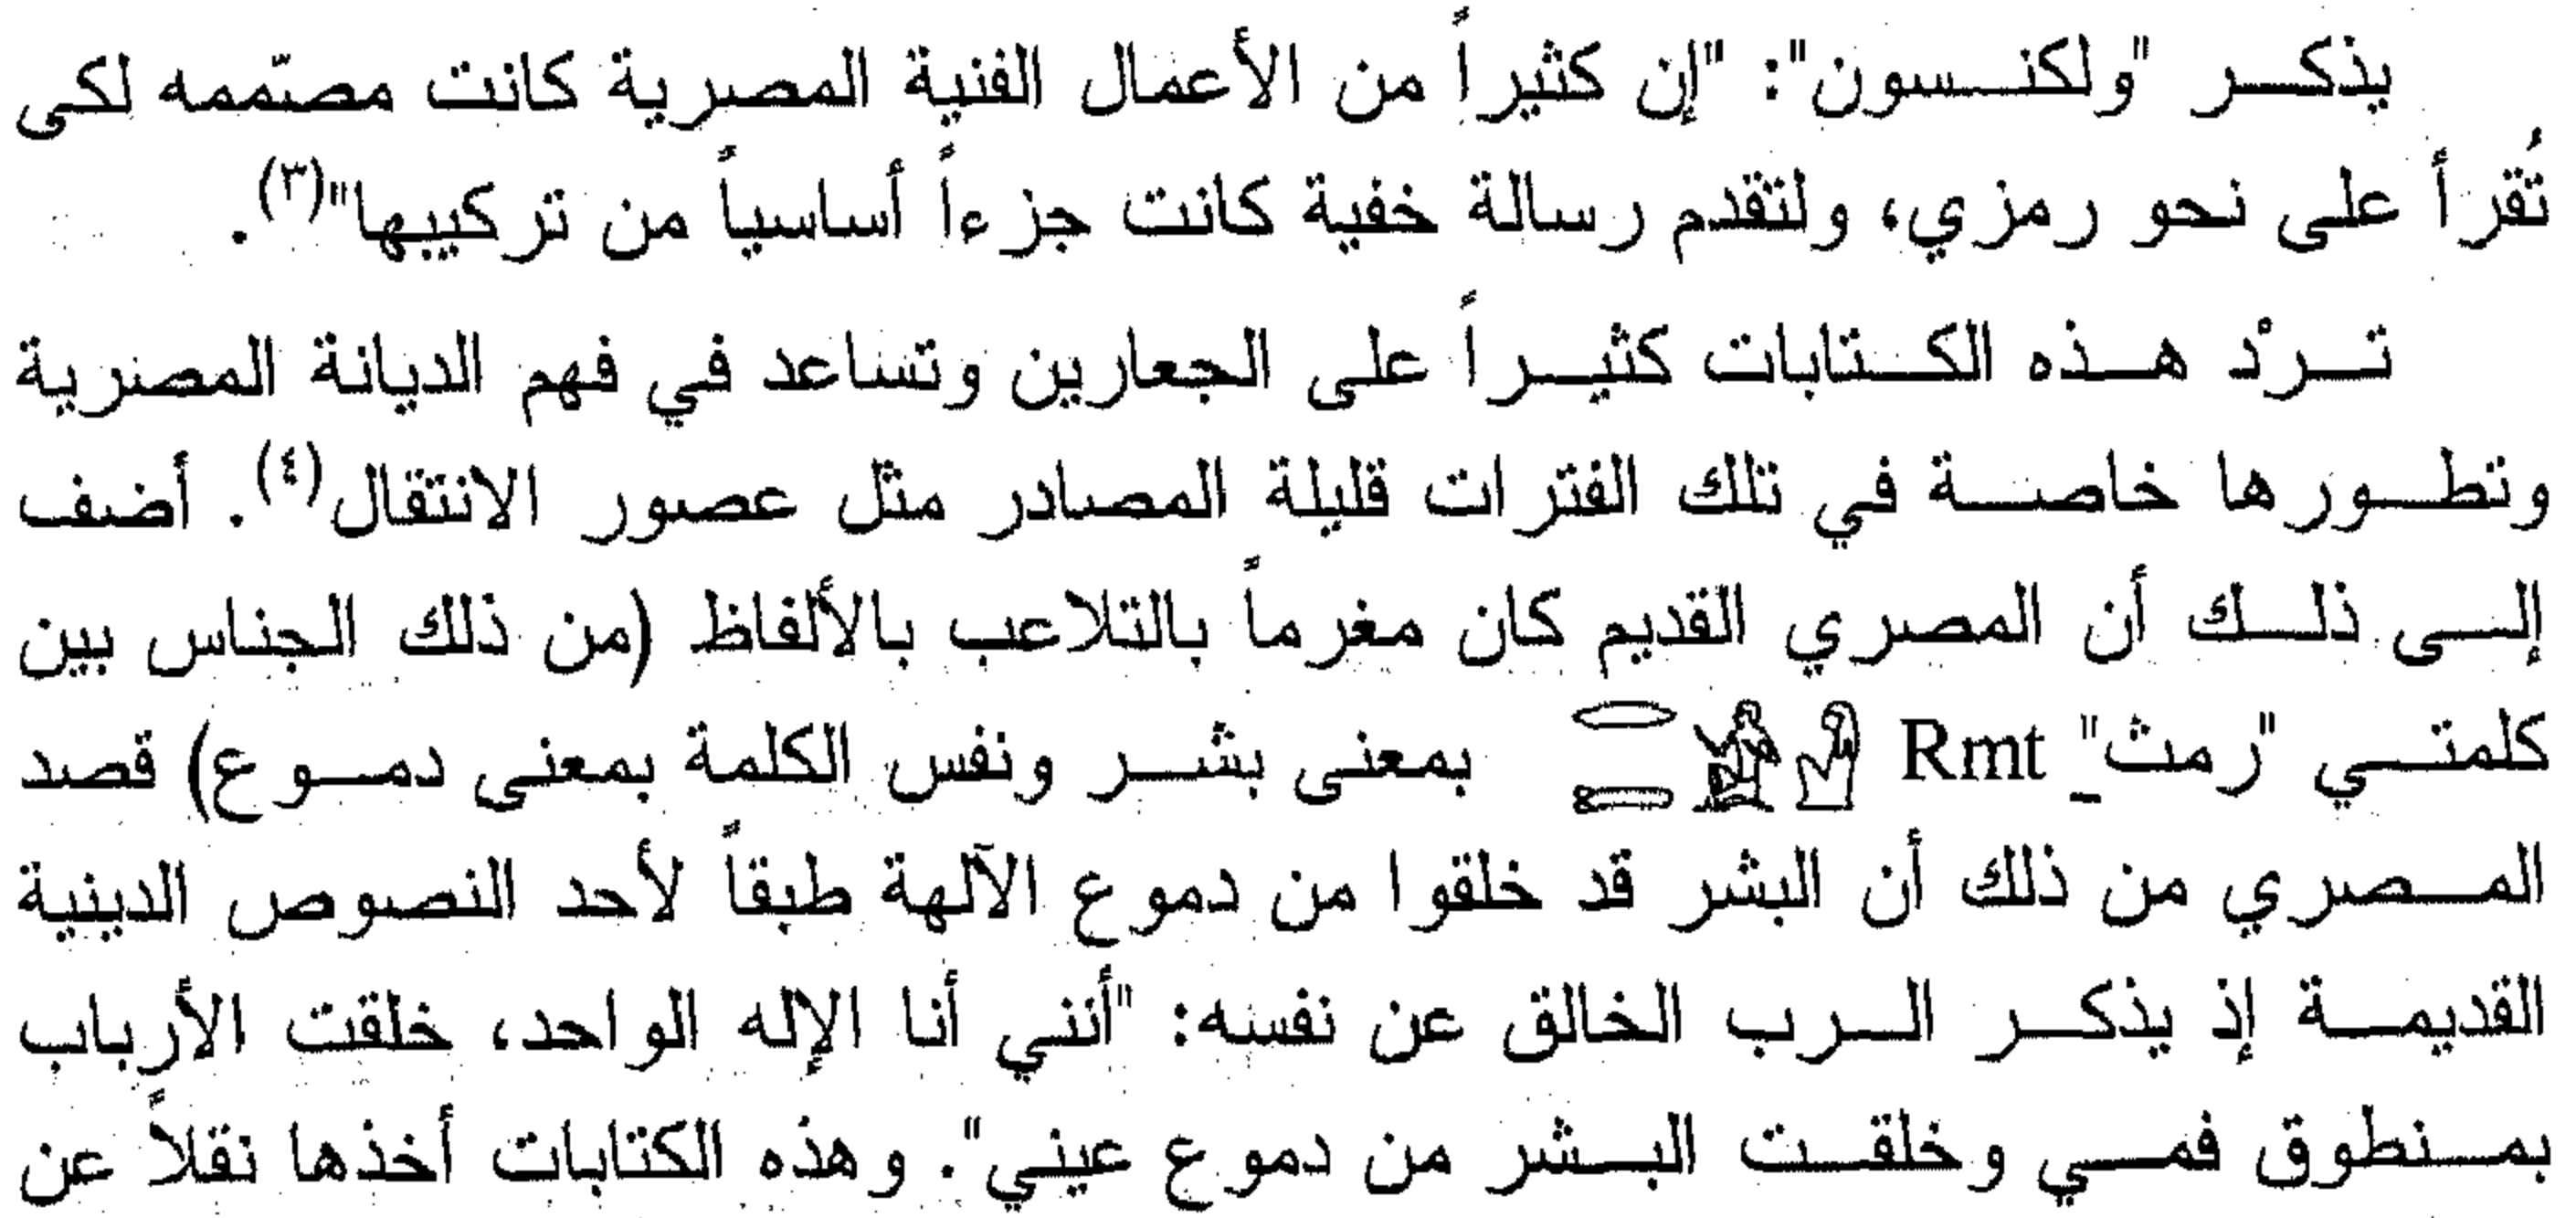 يذكر "ولكنسون": "إن كثيراً من الأعمال الفنية المصرية كانت مصمّمه لكى
تُقرأ على نحو رمزي، ولتقدم رسالة خفية كانت جزءاً أساسياً من تركيبها"(٣).
تردْ هذه الكتابات كثيراً على الجعارين وتساعد في فهم الديانة المصرية
وتطورها خاصة في تلك الفترات قليلة المصادر مثل عصور الانتقال(٤). أضف
إلى ذلك أن المصري القديم كان مغرماً بالتلاعب بالألفاظ (من ذلك الجناس بين
كلمتي "رمث" Rmt بمعنى بشر ونفس الكلمة بمعنى دموع) قصد
المصري من ذلك أن البشر قد خلقوا من دموع الآلهة طبقاً لأحد النصوص الدينية
القديمة إذ يذكر الرب الخالق عن نفسه: "أنني أنا الإله الواحد، خلقت الأرباب
بمنطوق فمي وخلقت البشر من دموع عيني". وهذه الكتابات أخذها نقلاً عن